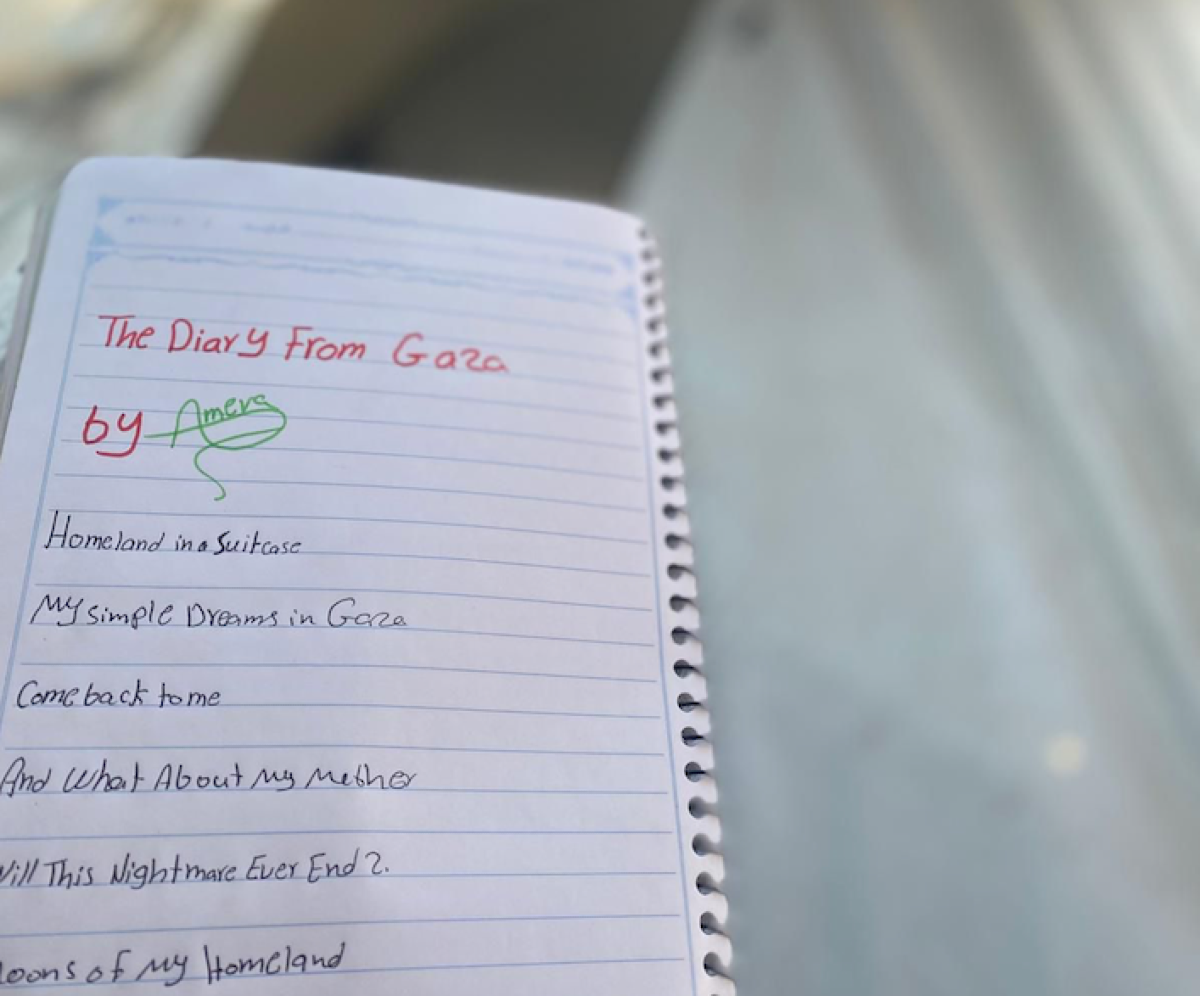 The Diary From Gaza
by Amera
Homeland in a Suitcase
My simple Dreams in Gaza
Come back to me
And What About My Mether
Will This Nightmare Ever End ?.
loons of My Homeland